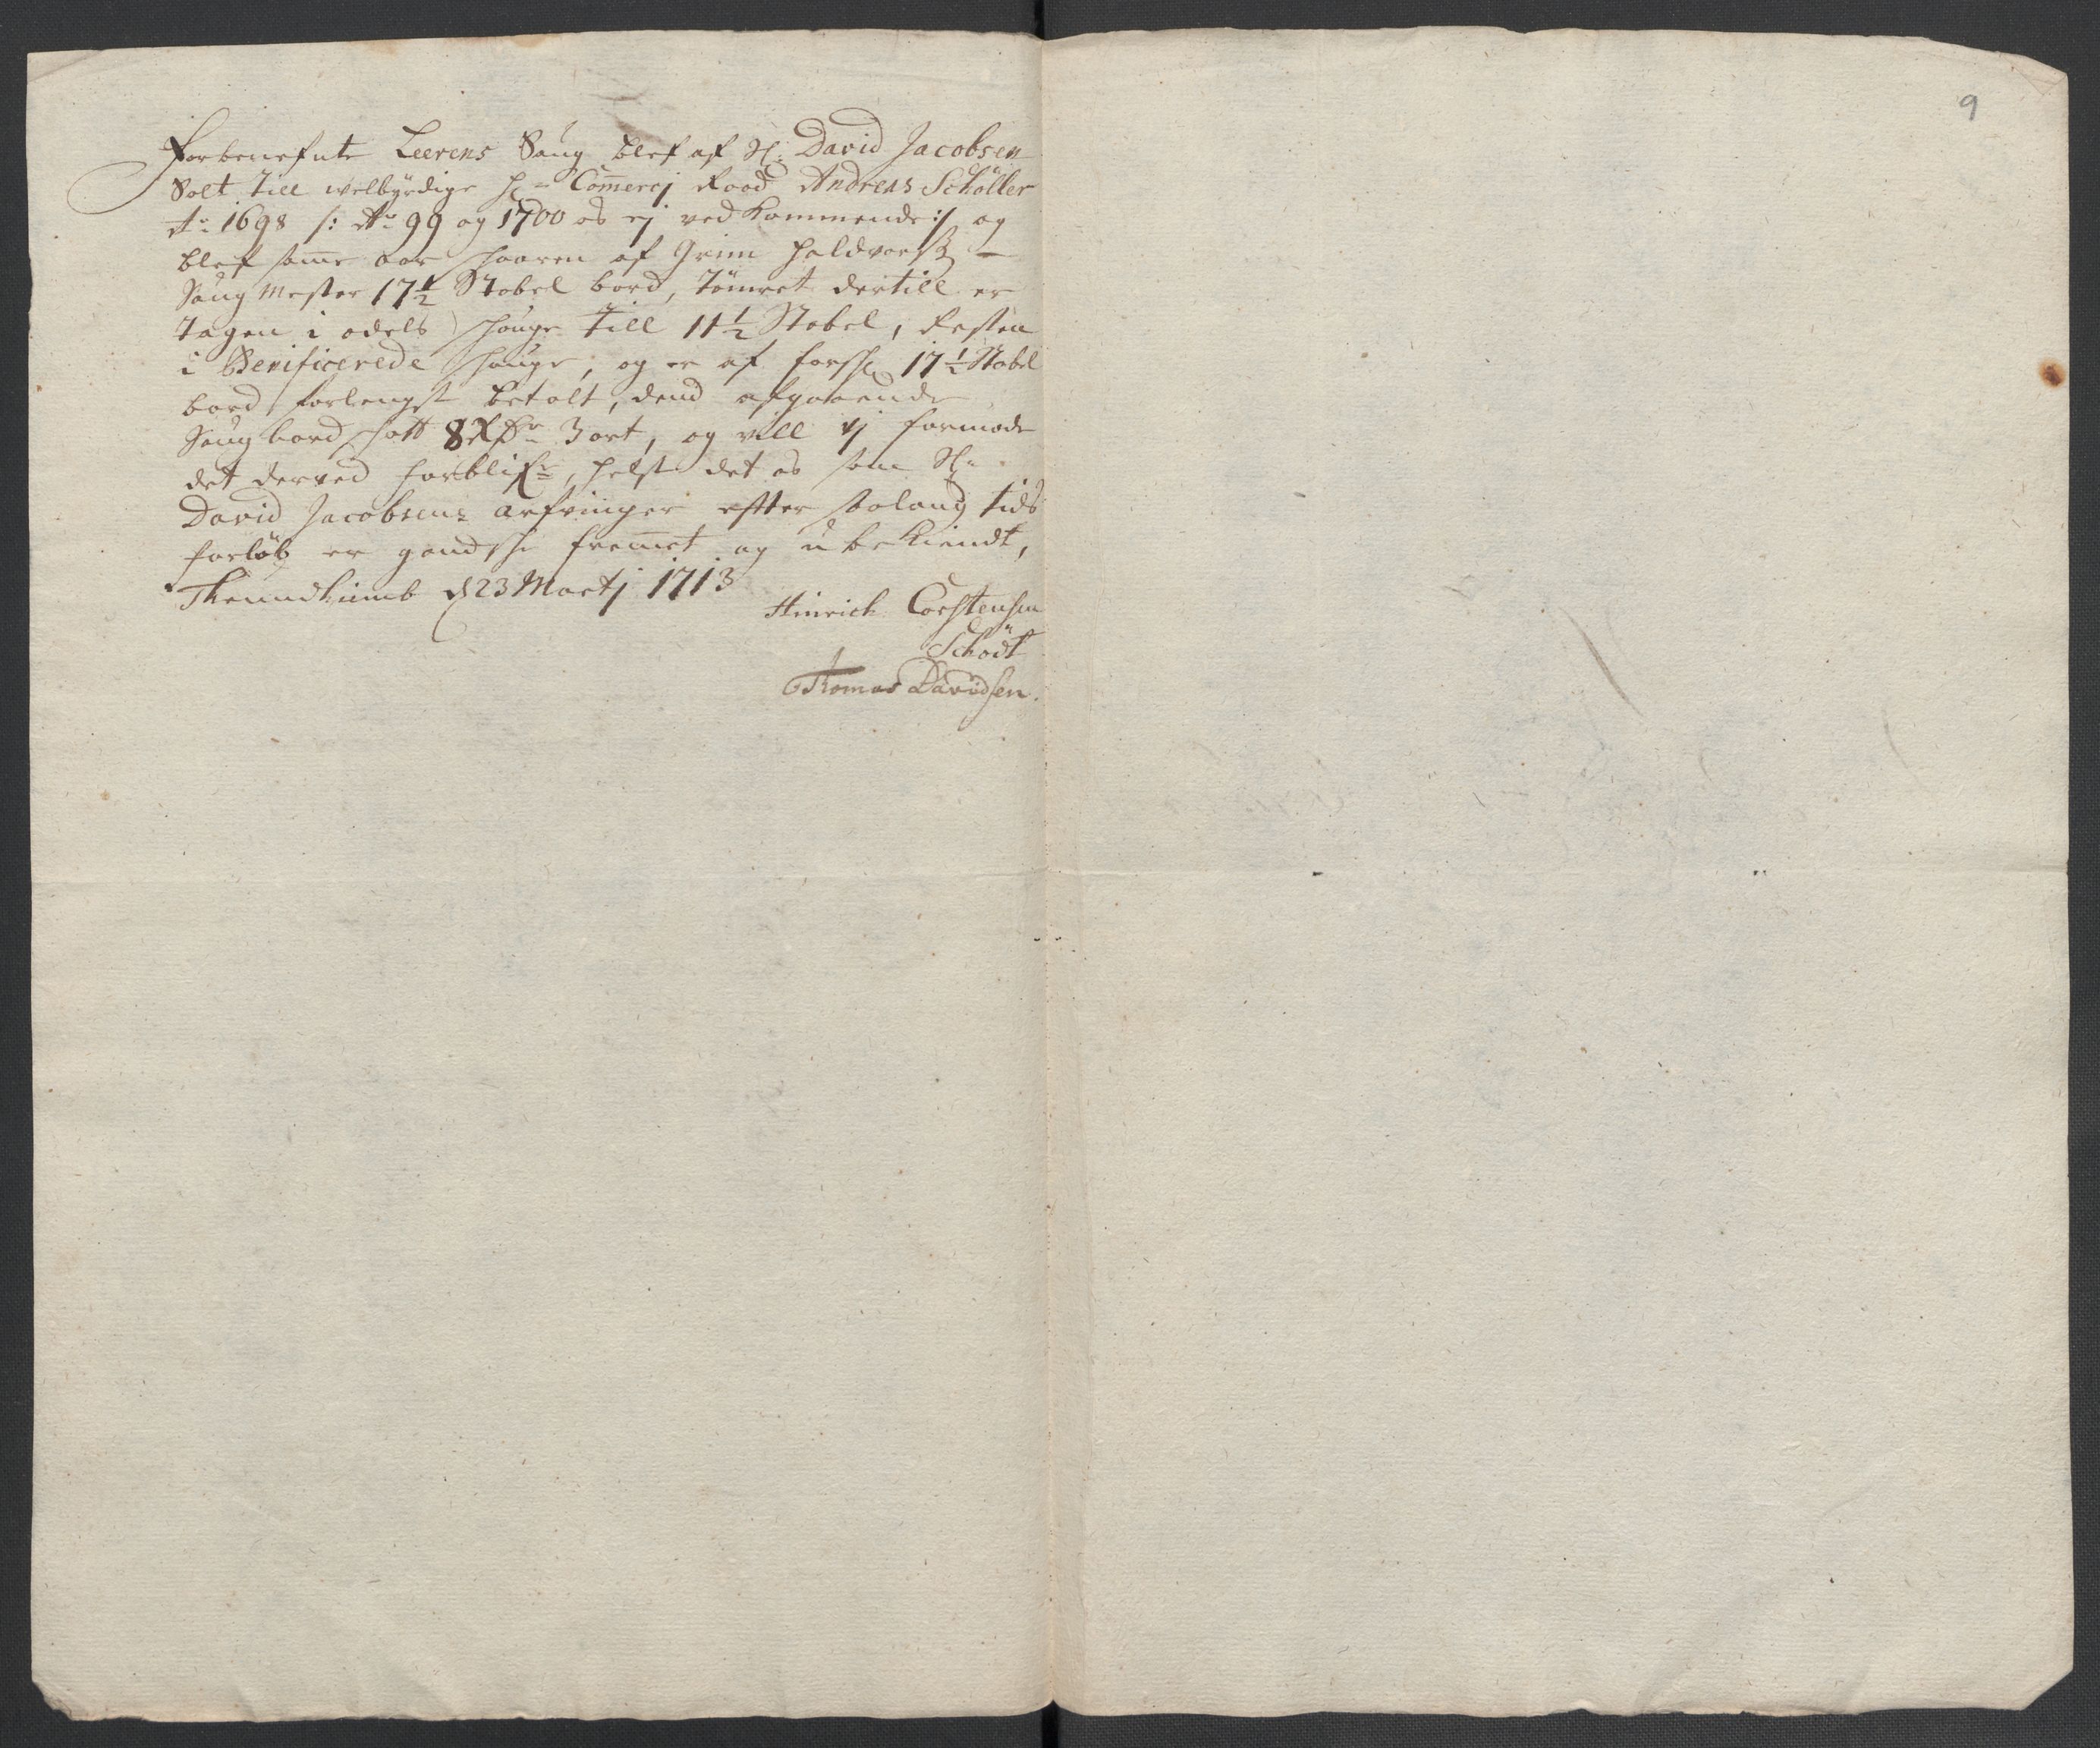 9
Forbenefnte Leerens Saug blef af Sl: David Jacobsen
Solt till welbyrdige Hr= Com̄ercj Raad Andreas Schöller
Ao 1698 /: Ao 99 og 1700 os ej ved kommende :/ og
blef sam̄e aar skaaren af Grim Haldvors: –
Saug Mester 17½ Stabel bord, Töm̄ret dertill er
tagen i odels schouge till 11½ Stabel, Resten
i Benificerede schouge, og er af forsh: 17½ Stabel
bord forlengst betalt, dend afgaaende
Saug bord schatt 8 Rdr 3 ort, og vill ej formode
det derved forblifr, helst det os som Sl:
David Jacobsens arfvinger effter saalang tids
forlöb er gandsche frem̄et og ubekiendt,
Thrundhiemb d 23 Martj 1713
Hinrich Carstensen
Schödt
Thomas Davidsen.